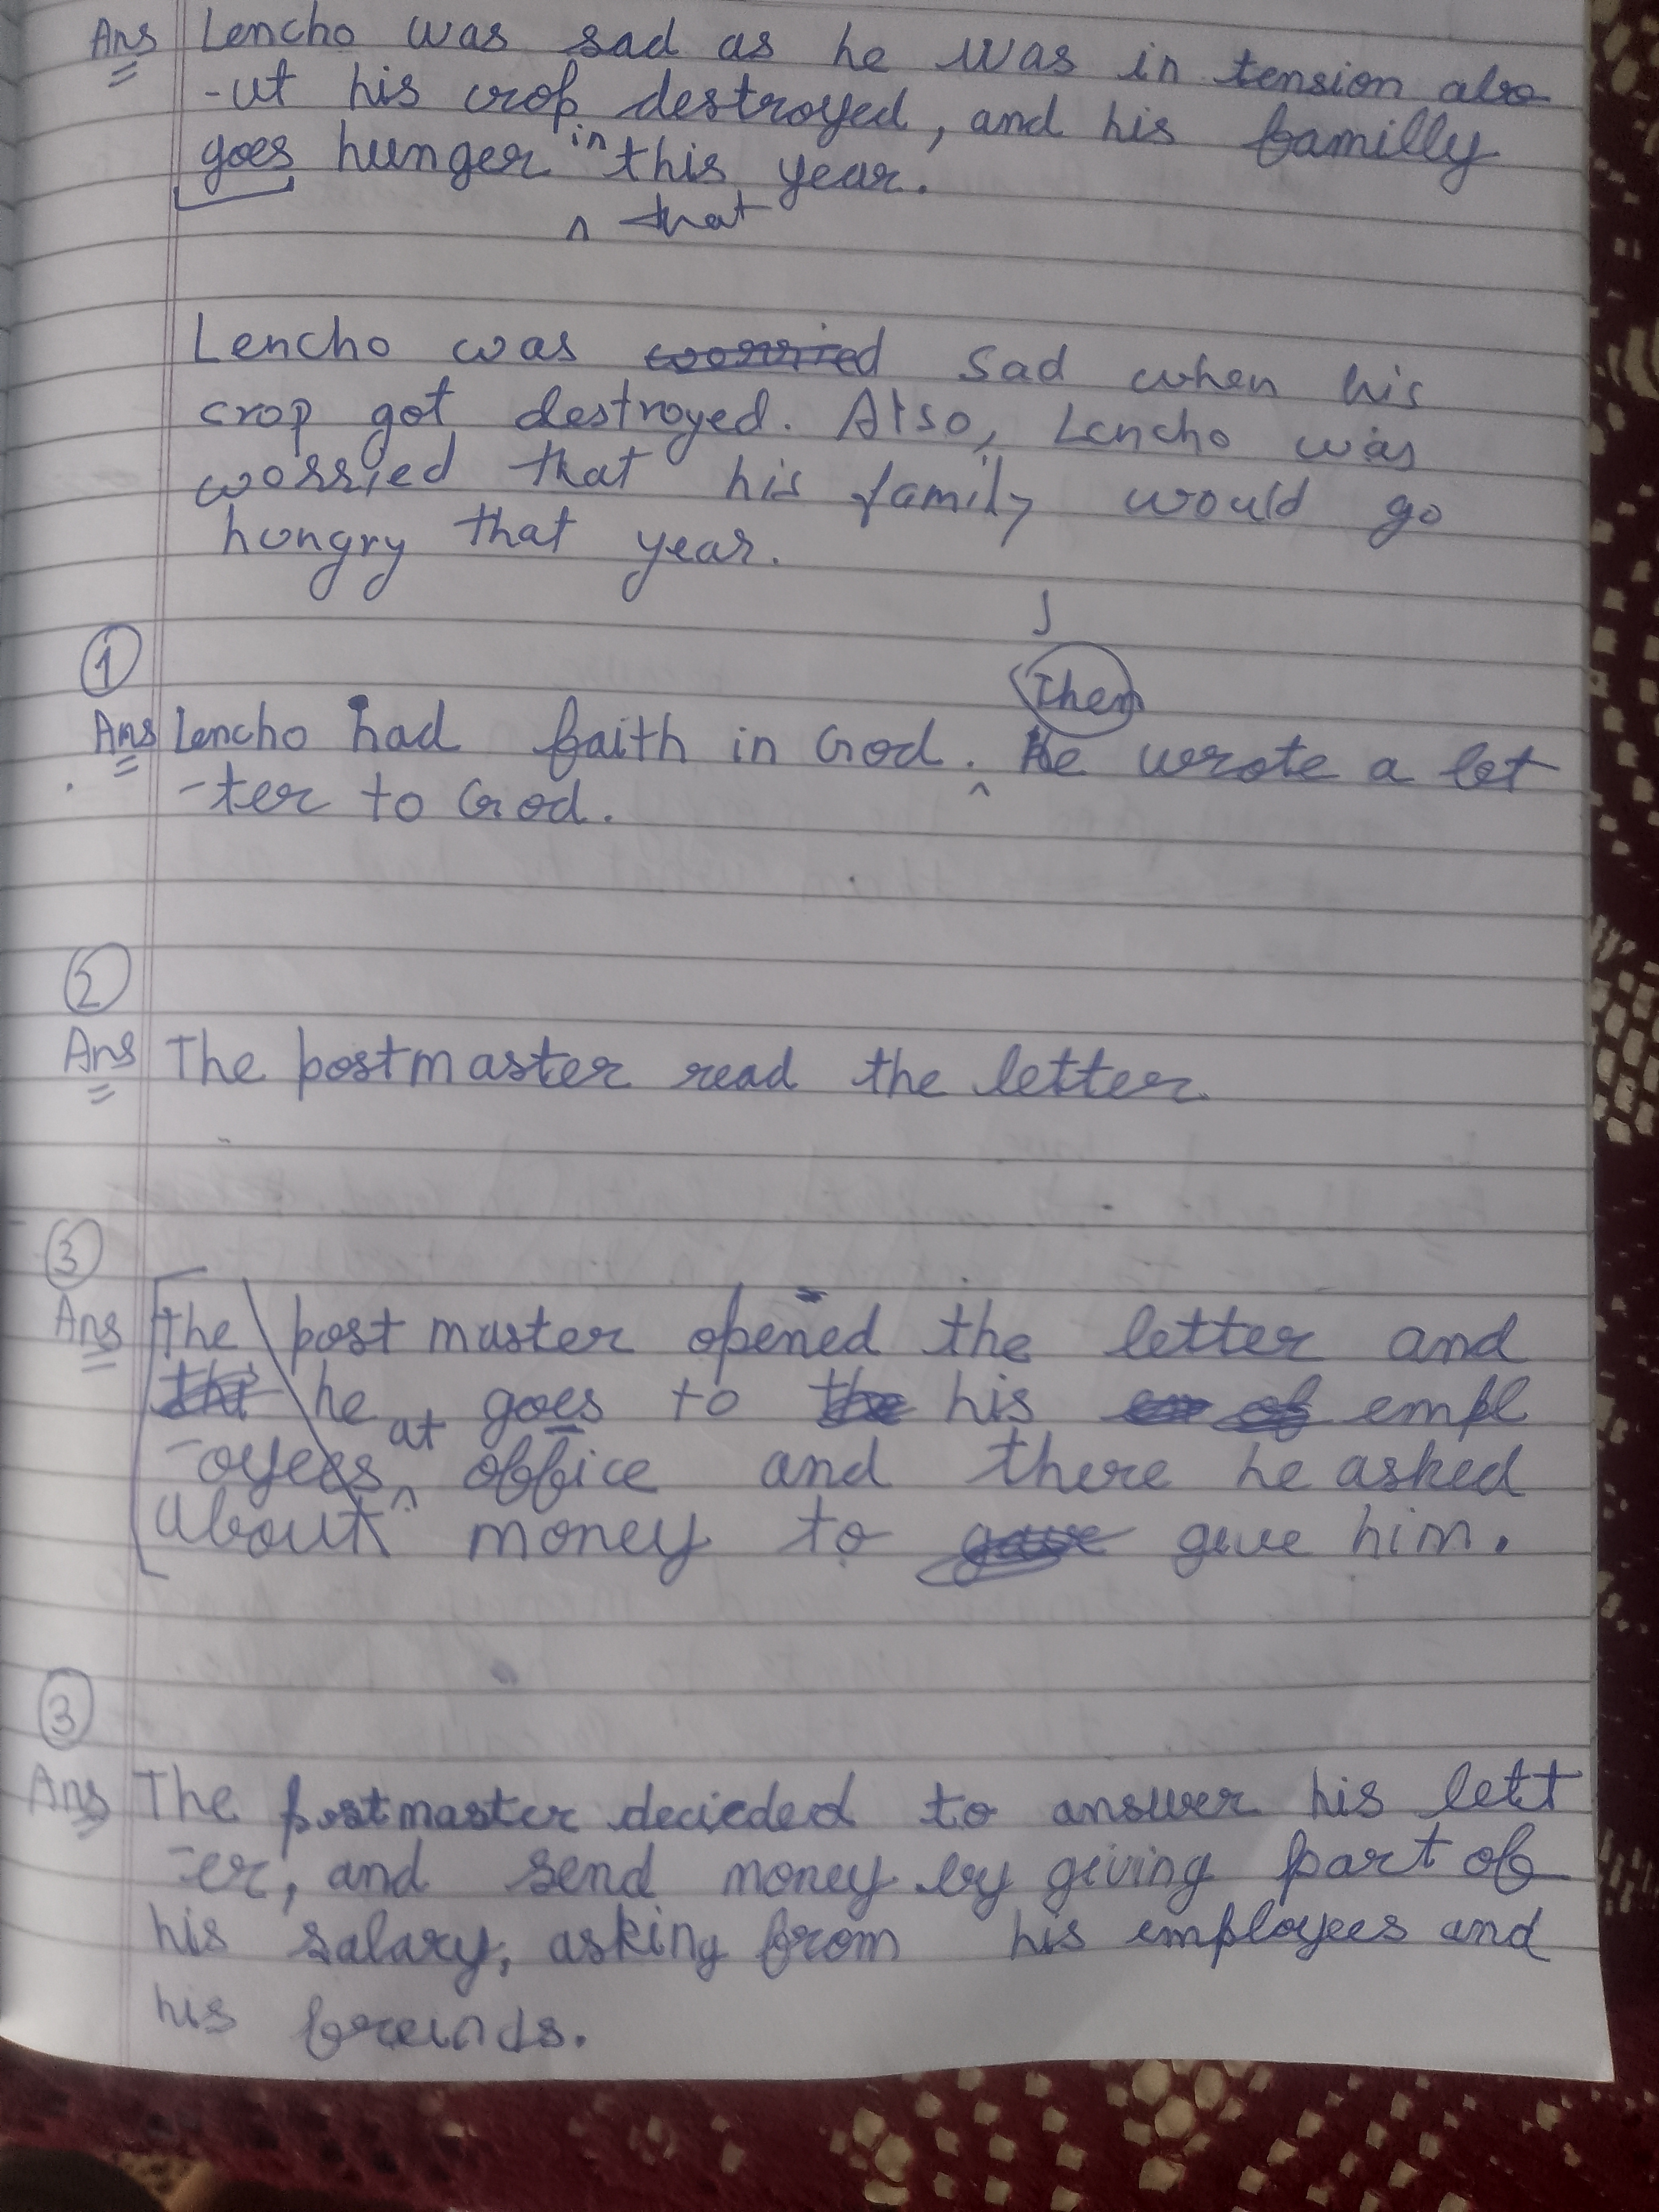 Ans Lencho was sad as he was in tension abo
-ut his crop destroyed, and his familly
goes hunger in this year.
^ that
Lencho was worried sad when his
crop got destroyed. Also, Lencho was
worried that his family would go
hungry that year.
1
Then
Ans Lencho had faith in God. ^ He wrote a let
-ter to God.
2
Ans The postmaster read the letter.
3
Ans The post master opened the letter and
he goes to the his empl
-oyees ^ at office and there he asked
about money to gave give him.
3
Ans The postmaster decieded to answer his lett
-er, and send money by giving part of
his salary, asking from his employees and
his freinds.